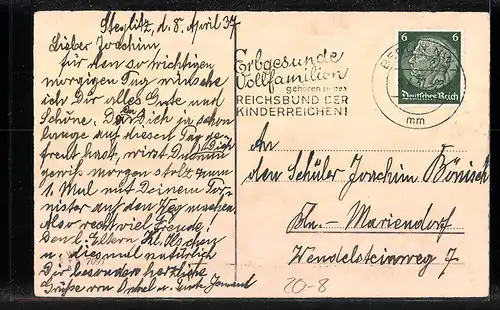 Steglitz, d. 8. April 37
Lieber Joachim,
für den so wichtigen
morgigen Tag wünsche
ich Dir alles Gute und
Schöne. Da Du Dich ja schon
lange auf diesen Tag ge-
freut hast, wirst Du Dich nun
gewiß morgen stolz zum
1. Mal mit Deinem Tor-
nister auf den Weg machen.
Also recht viel Freude!
Den l. Eltern, Kl.
u. diesmal natürlich
Dir besonders herzliche
Grüße von Onkel u. Tante
7091
Erbgesunde
Vollfamilien
gehören in den
REICHSBUND DER
KINDERREICHEN!
BERLIN
mm
6 6
Deutsches Reich
An
den Schüler Joachim Bönisch
Bln.-Mariendorf
Wendelsteinweg 7
20-8